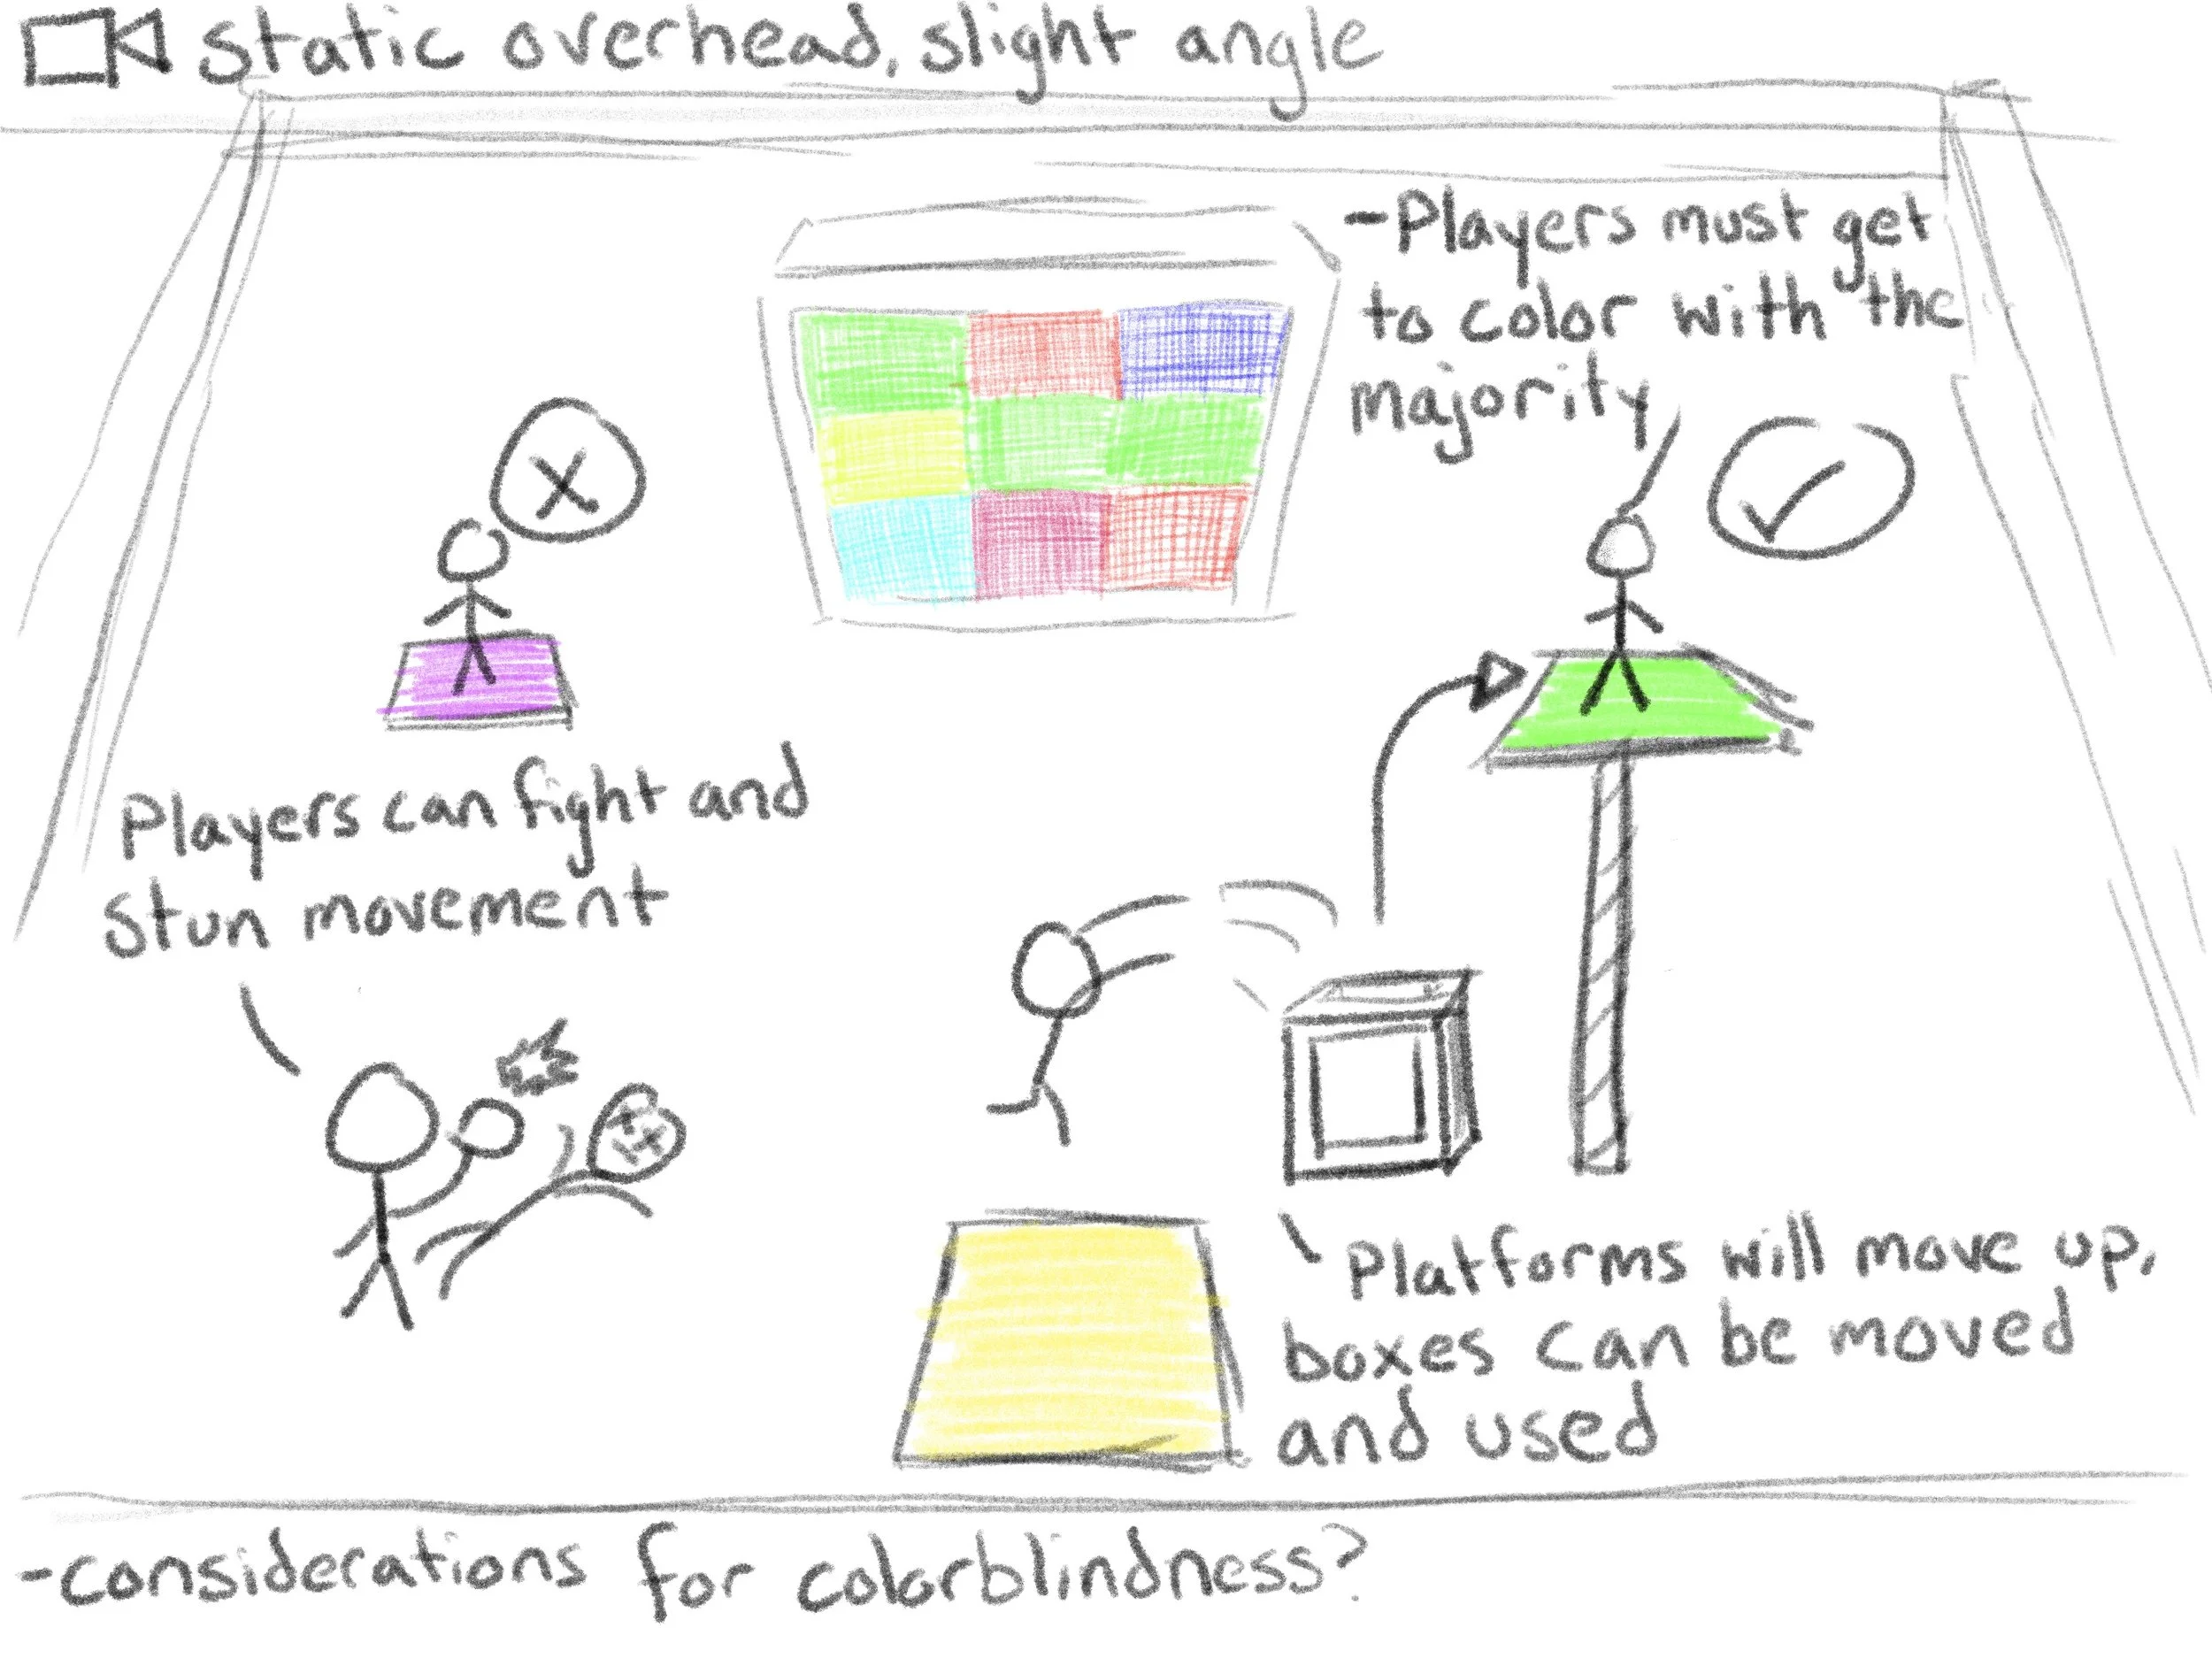 static overhead, slight angle
-Players must get
to color with the
majority
Players can fight and
stun movement
Platforms will move up,
boxes can be moved
and used
-considerations for colorblindness?